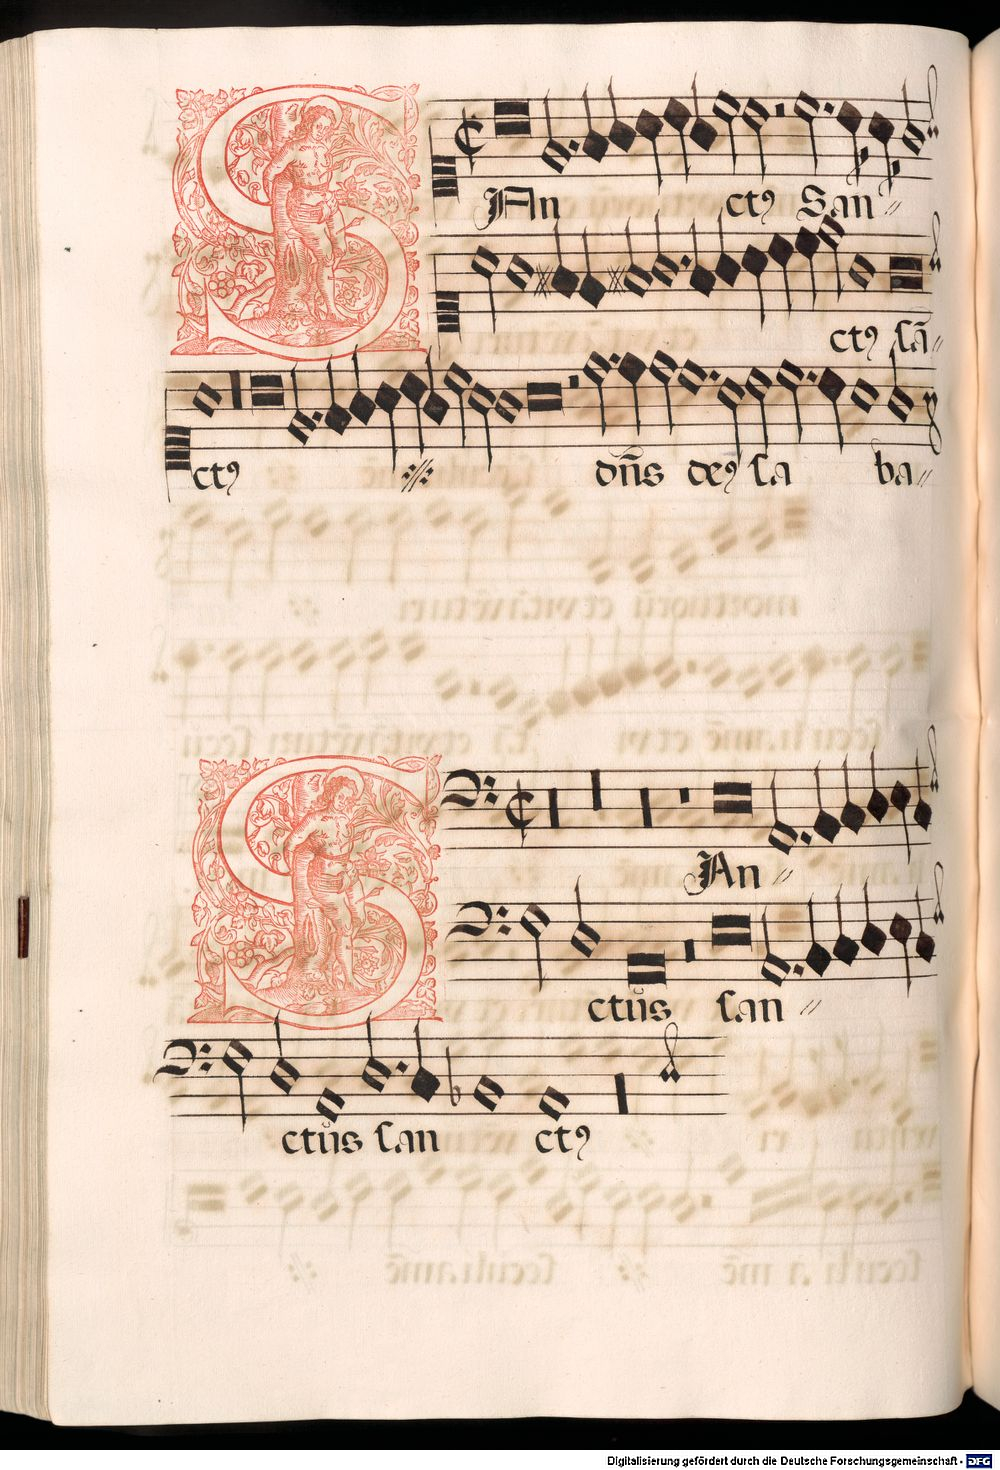 SAn ctꝰ San
ctꝰ ſā
ctꝰ dn̄s deꝰ ſa ba
SAn
ctus ſan
ctus ſan ctꝰ
Digitalisierung gefördert durch die Deutsche Forschungsgemeinschaft - DFG